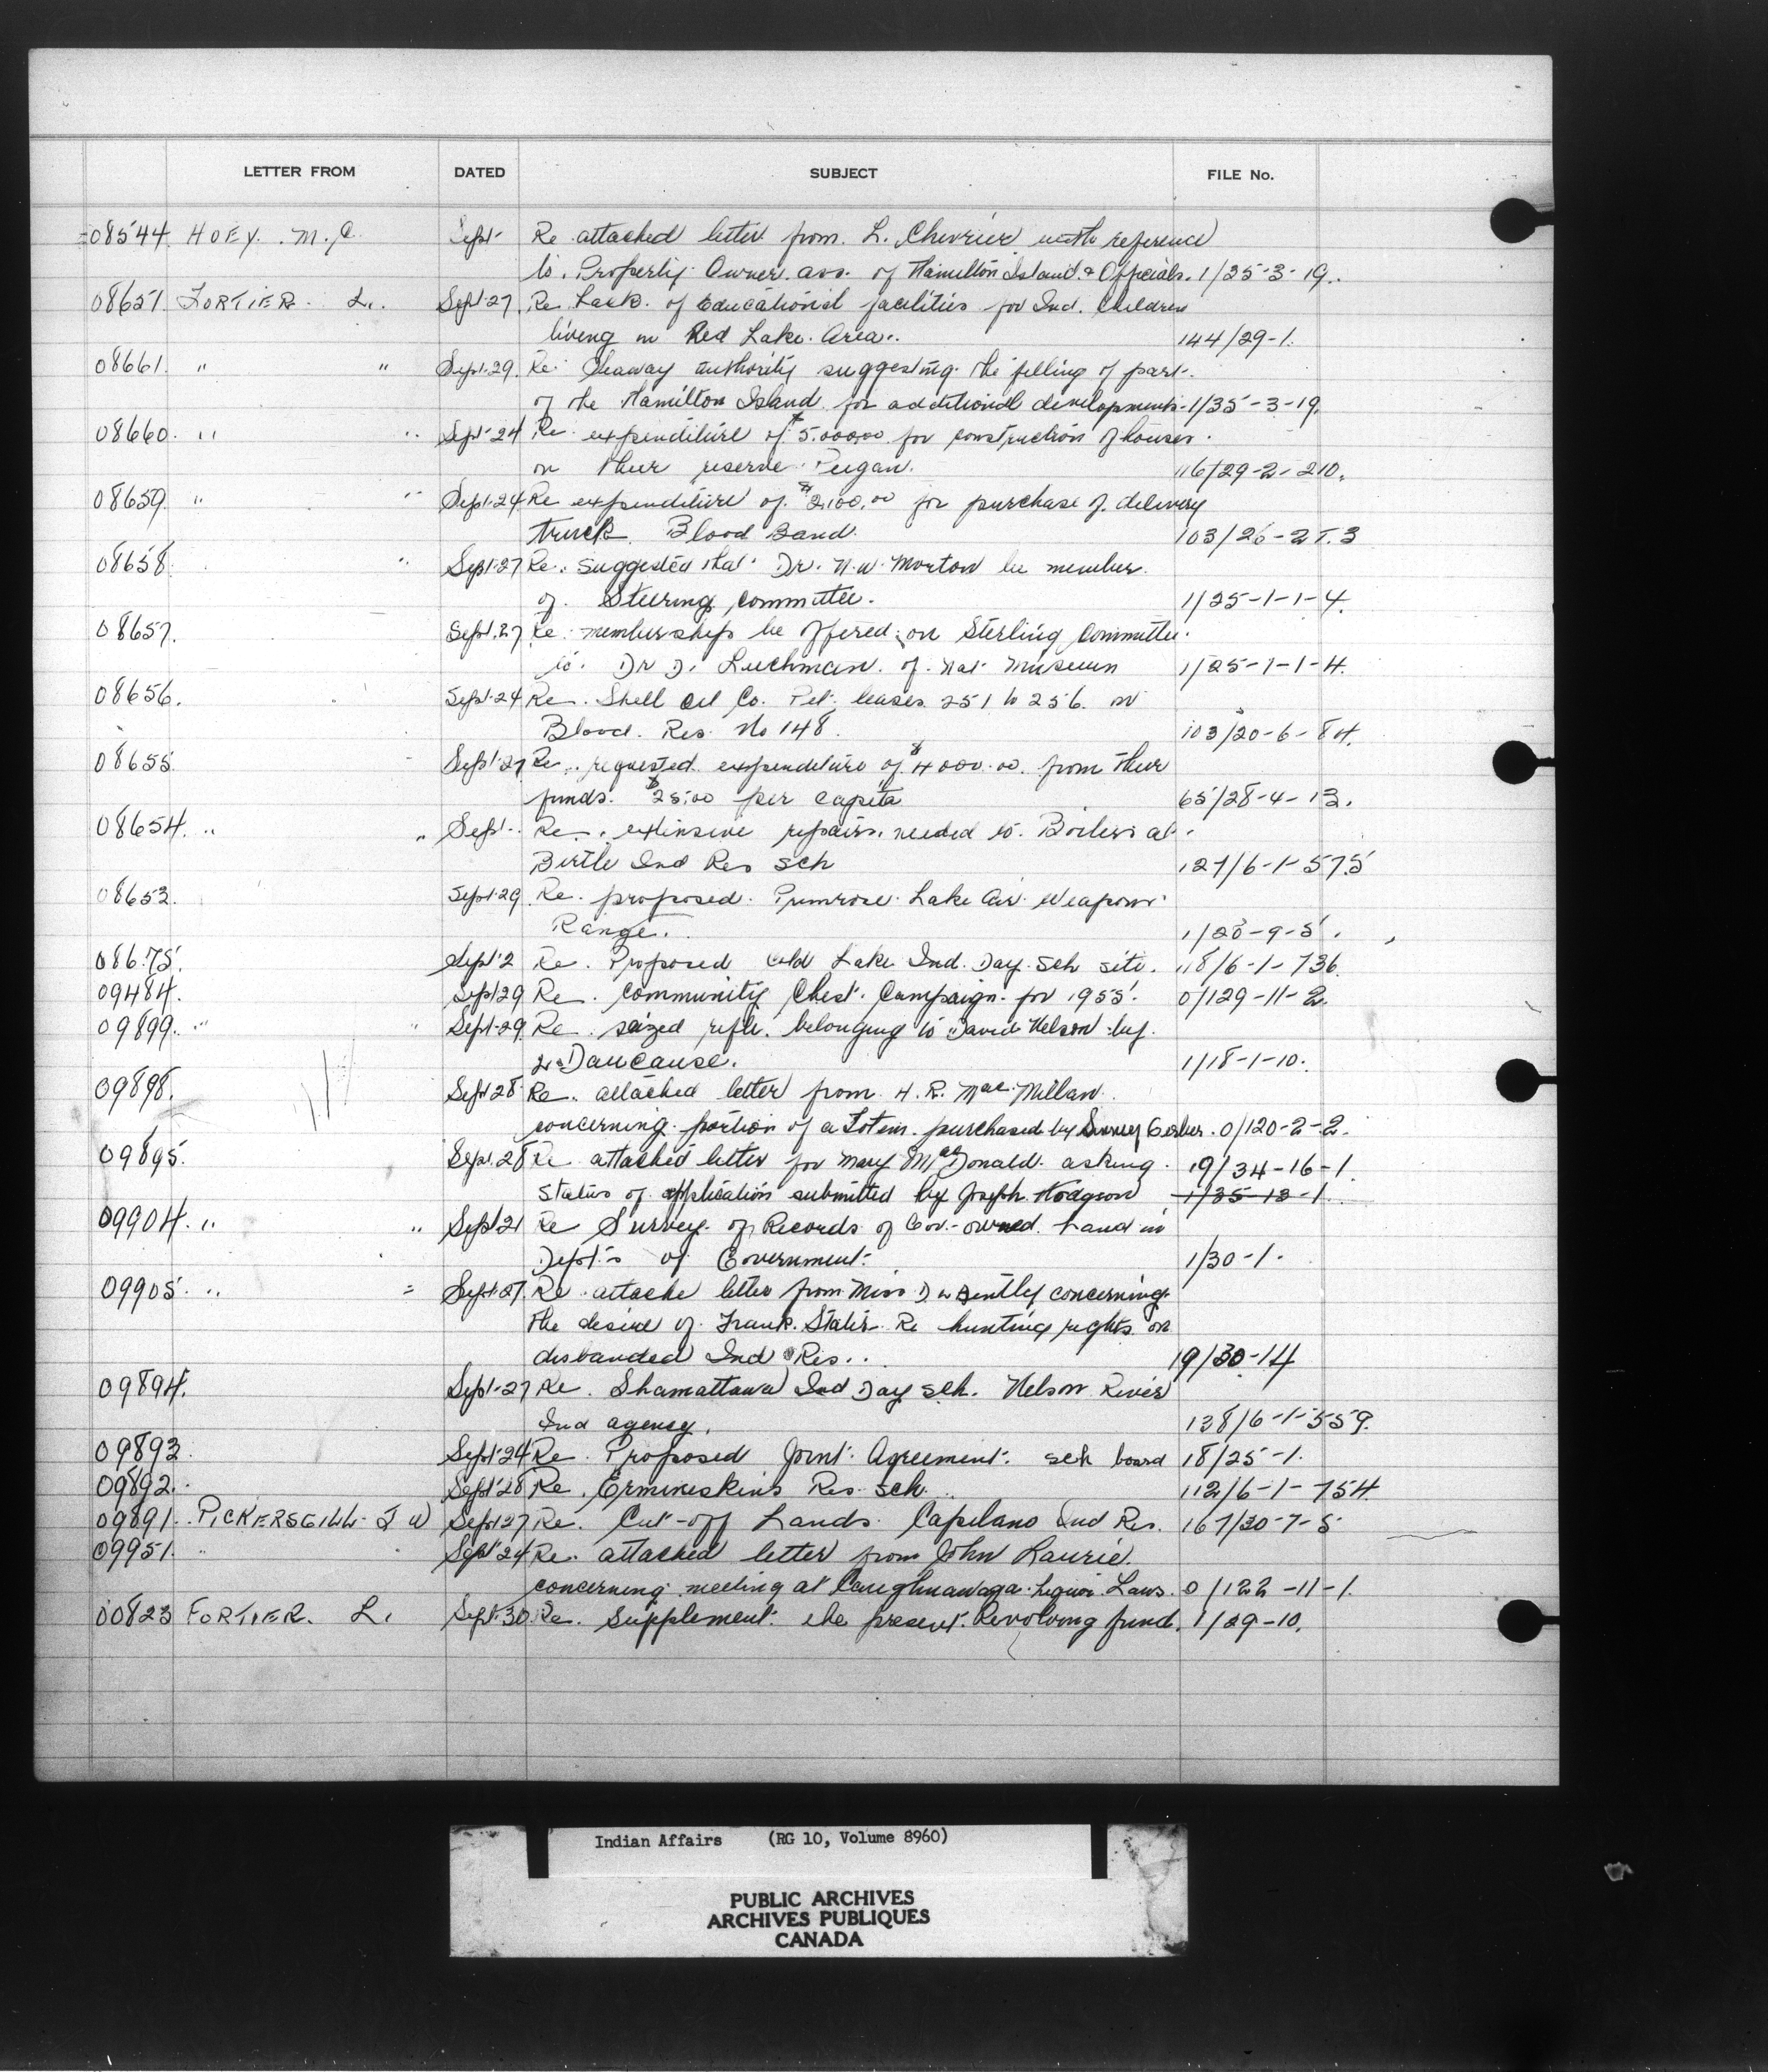 LETTER FROM DATED SUBJECT FILE No.
08544 HOEY. M.C. Sept Re attached letter from L. Chevrier with reference
to. Property Owner ass. of Hamilton Island & Officials. 1/25-3-19.
08651 FORTIER. L. Sept 27. Re Lack of Educational facilities for Ind. Children
living in Red Lake Area. 144/29-1.
08661. " " Sept.29. Re: Seaway authority suggesting the filling of part
of the Hamilton Island for additional developments. 1/35-3-19.
08660. " " Sept 24 Re expenditure of $5,000.00 for construction of houses
on their reserve Peigan. 116/29-2-210.
08659 " " Sept.24 Re expenditure of $2,100.00 for purchase of delivery
truck Blood Band. 103/26-2T.3
08658 " Sept 27 Re. Suggested that Dr. N.W. Morton be member
of Steering Committee. 1/25-1-1-4.
08657. Sept.27 Re membership be offered on Sterling Committee
to. Dr D. Leechman of Nat Museum 1/25-1-1-4.
08656. Sept.24 Re. Shell Oil Co. Pet. leases 251 to 256 on
Blood. Res. No 148. 103/20-6-84.
08655 Sept 27 Re. requested expenditure of $4000.00 from their
funds. $25.00 per capita 65/28-4-13.
08654. " " Sept- Re. extensive repairs needed to Boilers at
Birtle Ind Res Sch 127/6-1-575
08653. Sept.29 Re. proposed Primrose Lake Air Weapons
Range. 1/20-9-5.
08675. Sept 2 Re. Proposed Cold Lake Ind. Day Sch site. 118/6-1-736.
09484. Sept 29 Re. Community Chest Campaign for 1955. 0/129-11-2.
09899. " " Sept.29 Re. seized rifle belonging to David Nelson by
Daucause. 1/18-1-10.
09898. Sept 28 Re. attached letter from H.R. MacMillan
concerning portion of a Totem purchased by Gerber. 0/120-2-2.
09895. Sept.28 Re attached letter for Mary MacDonald asking 19/34-16-1.
status of application submitted by Joseph Hodgson 1/35-13-1
09904. " " Sept 21 Re Survey of Records of Gov.-owned Land in
Dept's of Government. 1/30-1.
09905. " " Sept 27 Re attache letter from Miss D W Bently concerning
the desire of Frank Re hunting rights on
disbanded Ind Res. 19/30-14
09894. Sept.27 Re. Shamattawa Ind Day Sch. Nelson River
Ind agency. 138/6-1-559.
09893 Sept 24 Re. Proposed Joint Agreement. sch board 18/25-1.
09892. Sept 28 Re. Ermineskin's Res. Sch. 112/6-1-754
09891. PICKERSGILL J W Sept 27 Re. Cut-off Lands Capilano Ind Res. 167/30-7-5
09951. " " Sept 24 Re. attached letter from John Laurie
concerning meeting at Caughnawaga Liquor Laws. 0/122-11-1.
00823 FORTIER. L. Sept.30 Re. Supplement the present Revolving fund. 1/29-10.
Indian Affairs (RG 10, Volume 8960)
PUBLIC ARCHIVES
ARCHIVES PUBLIQUES
CANADA